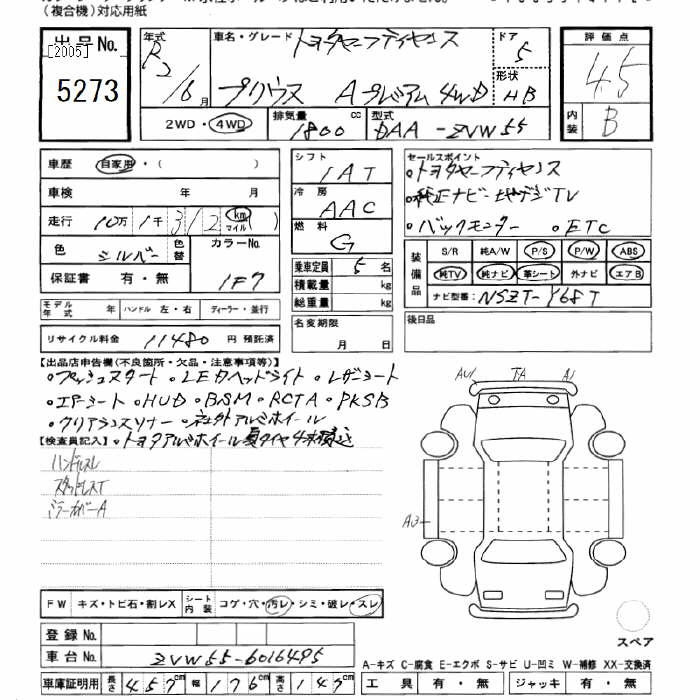 (複合機)対応用紙
出品No.
[2005]
5273
年式 R2/6月
車名・グレード トヨタセーフティセンス
プリウス Aプレミアム 4WD
ドア 5
形状 HB
2WD・4WD
排気量 1800 cc
型式 DAA-ZVW55
評価点 4.5
内装 B
車歴 自家用・( )
車検 年 月
走行 10万1千312 km マイル ( )
色 シルバー 色替 カラーNo. 1F7
保証書 有・無
シフト IAT
冷房 AAC
燃料 G
乗車定員 5名
積載量 kg
総重量 kg
名変期限 月 日
セールスポイント
・トヨタセーフティセンス
・純正ナビ・地デジTV
・バックモニター ・ETC
装備品 S/R 純A/W P/S P/W ABS
純TV 純ナビ 革シート 外ナビ エアB
ナビ型番: NSZT-Y68T
後日品
モデル年式 年 ハンドル 左・右 ディーラー・並行
リサイクル料金 11480 円 預託済
【出品店申告欄(不良箇所・欠品・注意事項等)】
・プッシュスタート ・LEDヘッドライト ・レザーシート
・エアーシート ・HUD ・BSM ・RCTA ・PKSB
・クリアランスソナー ・社外アルミホイール
【検査員記入】 ・トヨタアルミホイール夏タイヤ4本積込
ハンドルスレ
スタッドレスT
ミラーカバーA
AU1 TA A1
A3
FW キズ・トビ石・割レX シート内装 コゲ・穴・汚レ・シミ・破レ・スレ
登録No.
車台No. ZVW55-6016495
車庫証明用 長さ 457cm 幅 176cm 高さ 147cm
スペア
A-キズ C-腐食 E-エクボ S-サビ U-凹ミ W-補修 XX-交換済
工具 有・無 ジャッキ 有・無